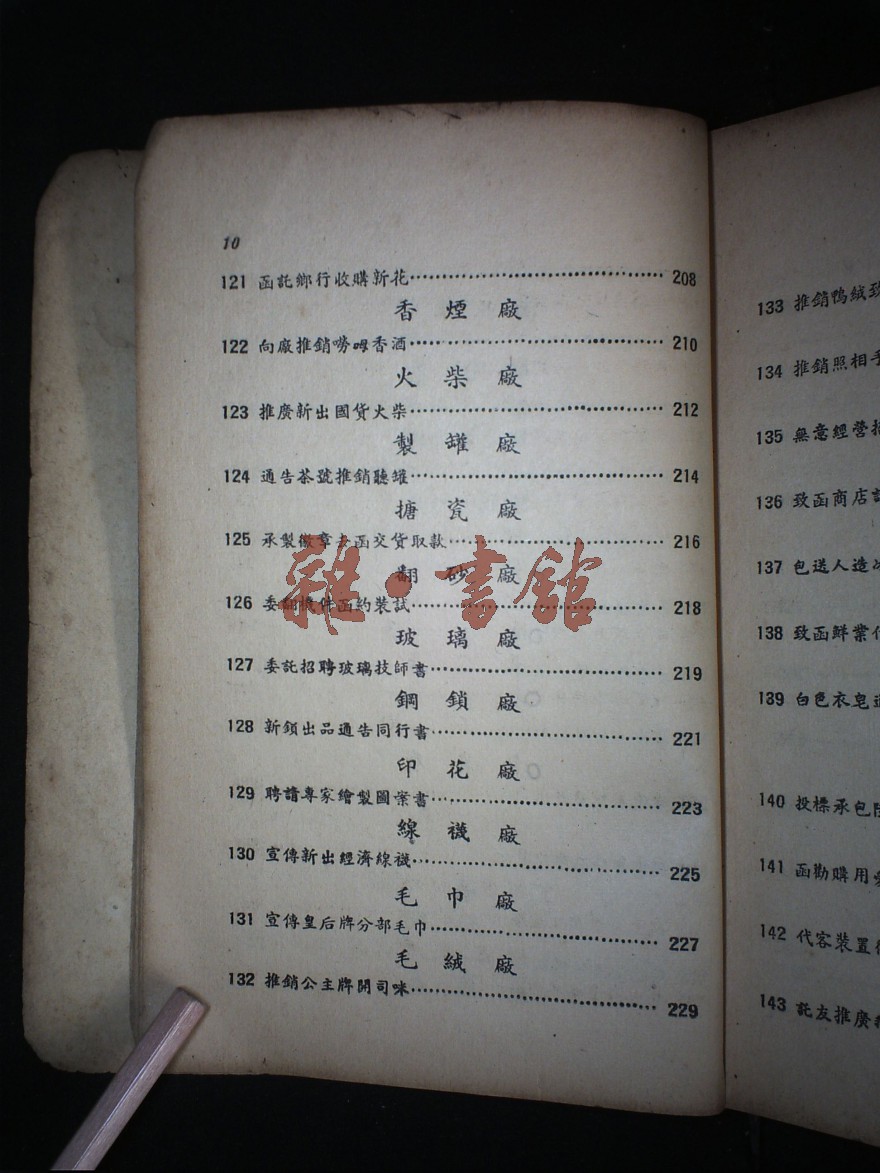 10
121 函託鄉行收購新花 208
香煙廠
122 向廠推銷嘮姆香酒 210
火柴廠
123 推廣新出國貨火柴 212
製罐廠
124 通告茶號推銷聽罐 214
搪瓷廠
125 承製徽章去函交貨取款 216
翻砂廠
126 委翻機件函約裝試 218
玻璃廠
127 委託招聘玻璃技師書 219
鋼鎖廠
128 新鎖出品通告同行書 221
印花廠
129 聘請專家繪製圖案書 223
線襪廠
130 宣傳新出經濟線襪 225
毛巾廠
131 宣傳皇后牌分部毛巾 227
毛絨廠
132 推銷公主牌開司咪 229
雜·書館
133 推銷鴨絨致
134 推銷照相
135 無意經營
136 致函商店
137 包送人造冰
138 致函鮮業
139 白色衣皂
140 投標承包
141 函勸購用
142 代客裝置
143 託友推廣